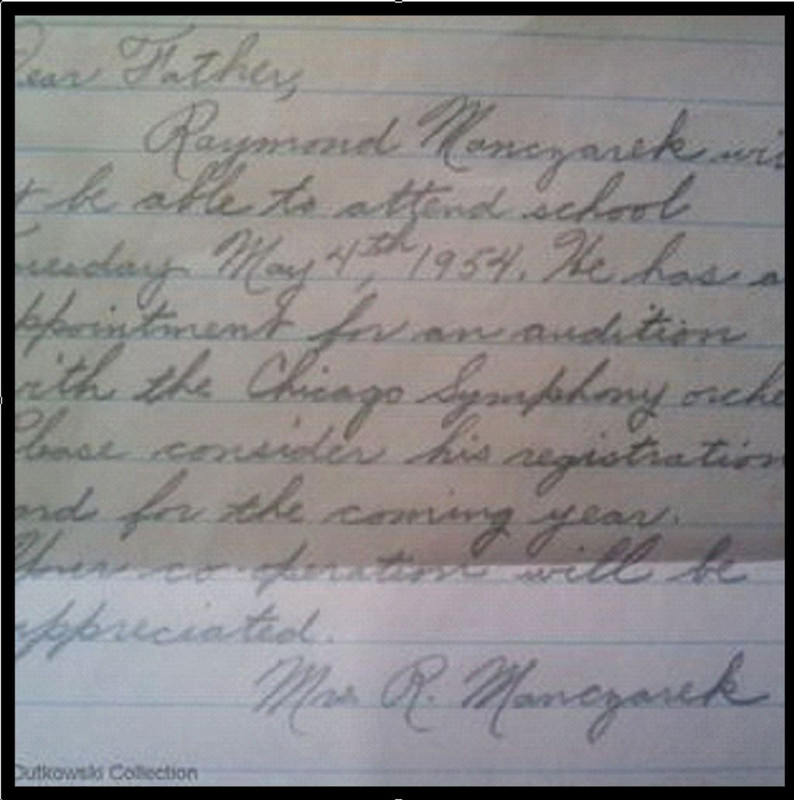 ear Father,
Raymond Manczarek wi
t be able to attend school
uesday May 4th, 1954. He has a
ppointment for an audition
ith the Chicago Symphony orche
lease consider his registration
nd for the coming year.
Your co-operation will be
appreciated.
Mrs R. Manczarek
Dutkowski Collection